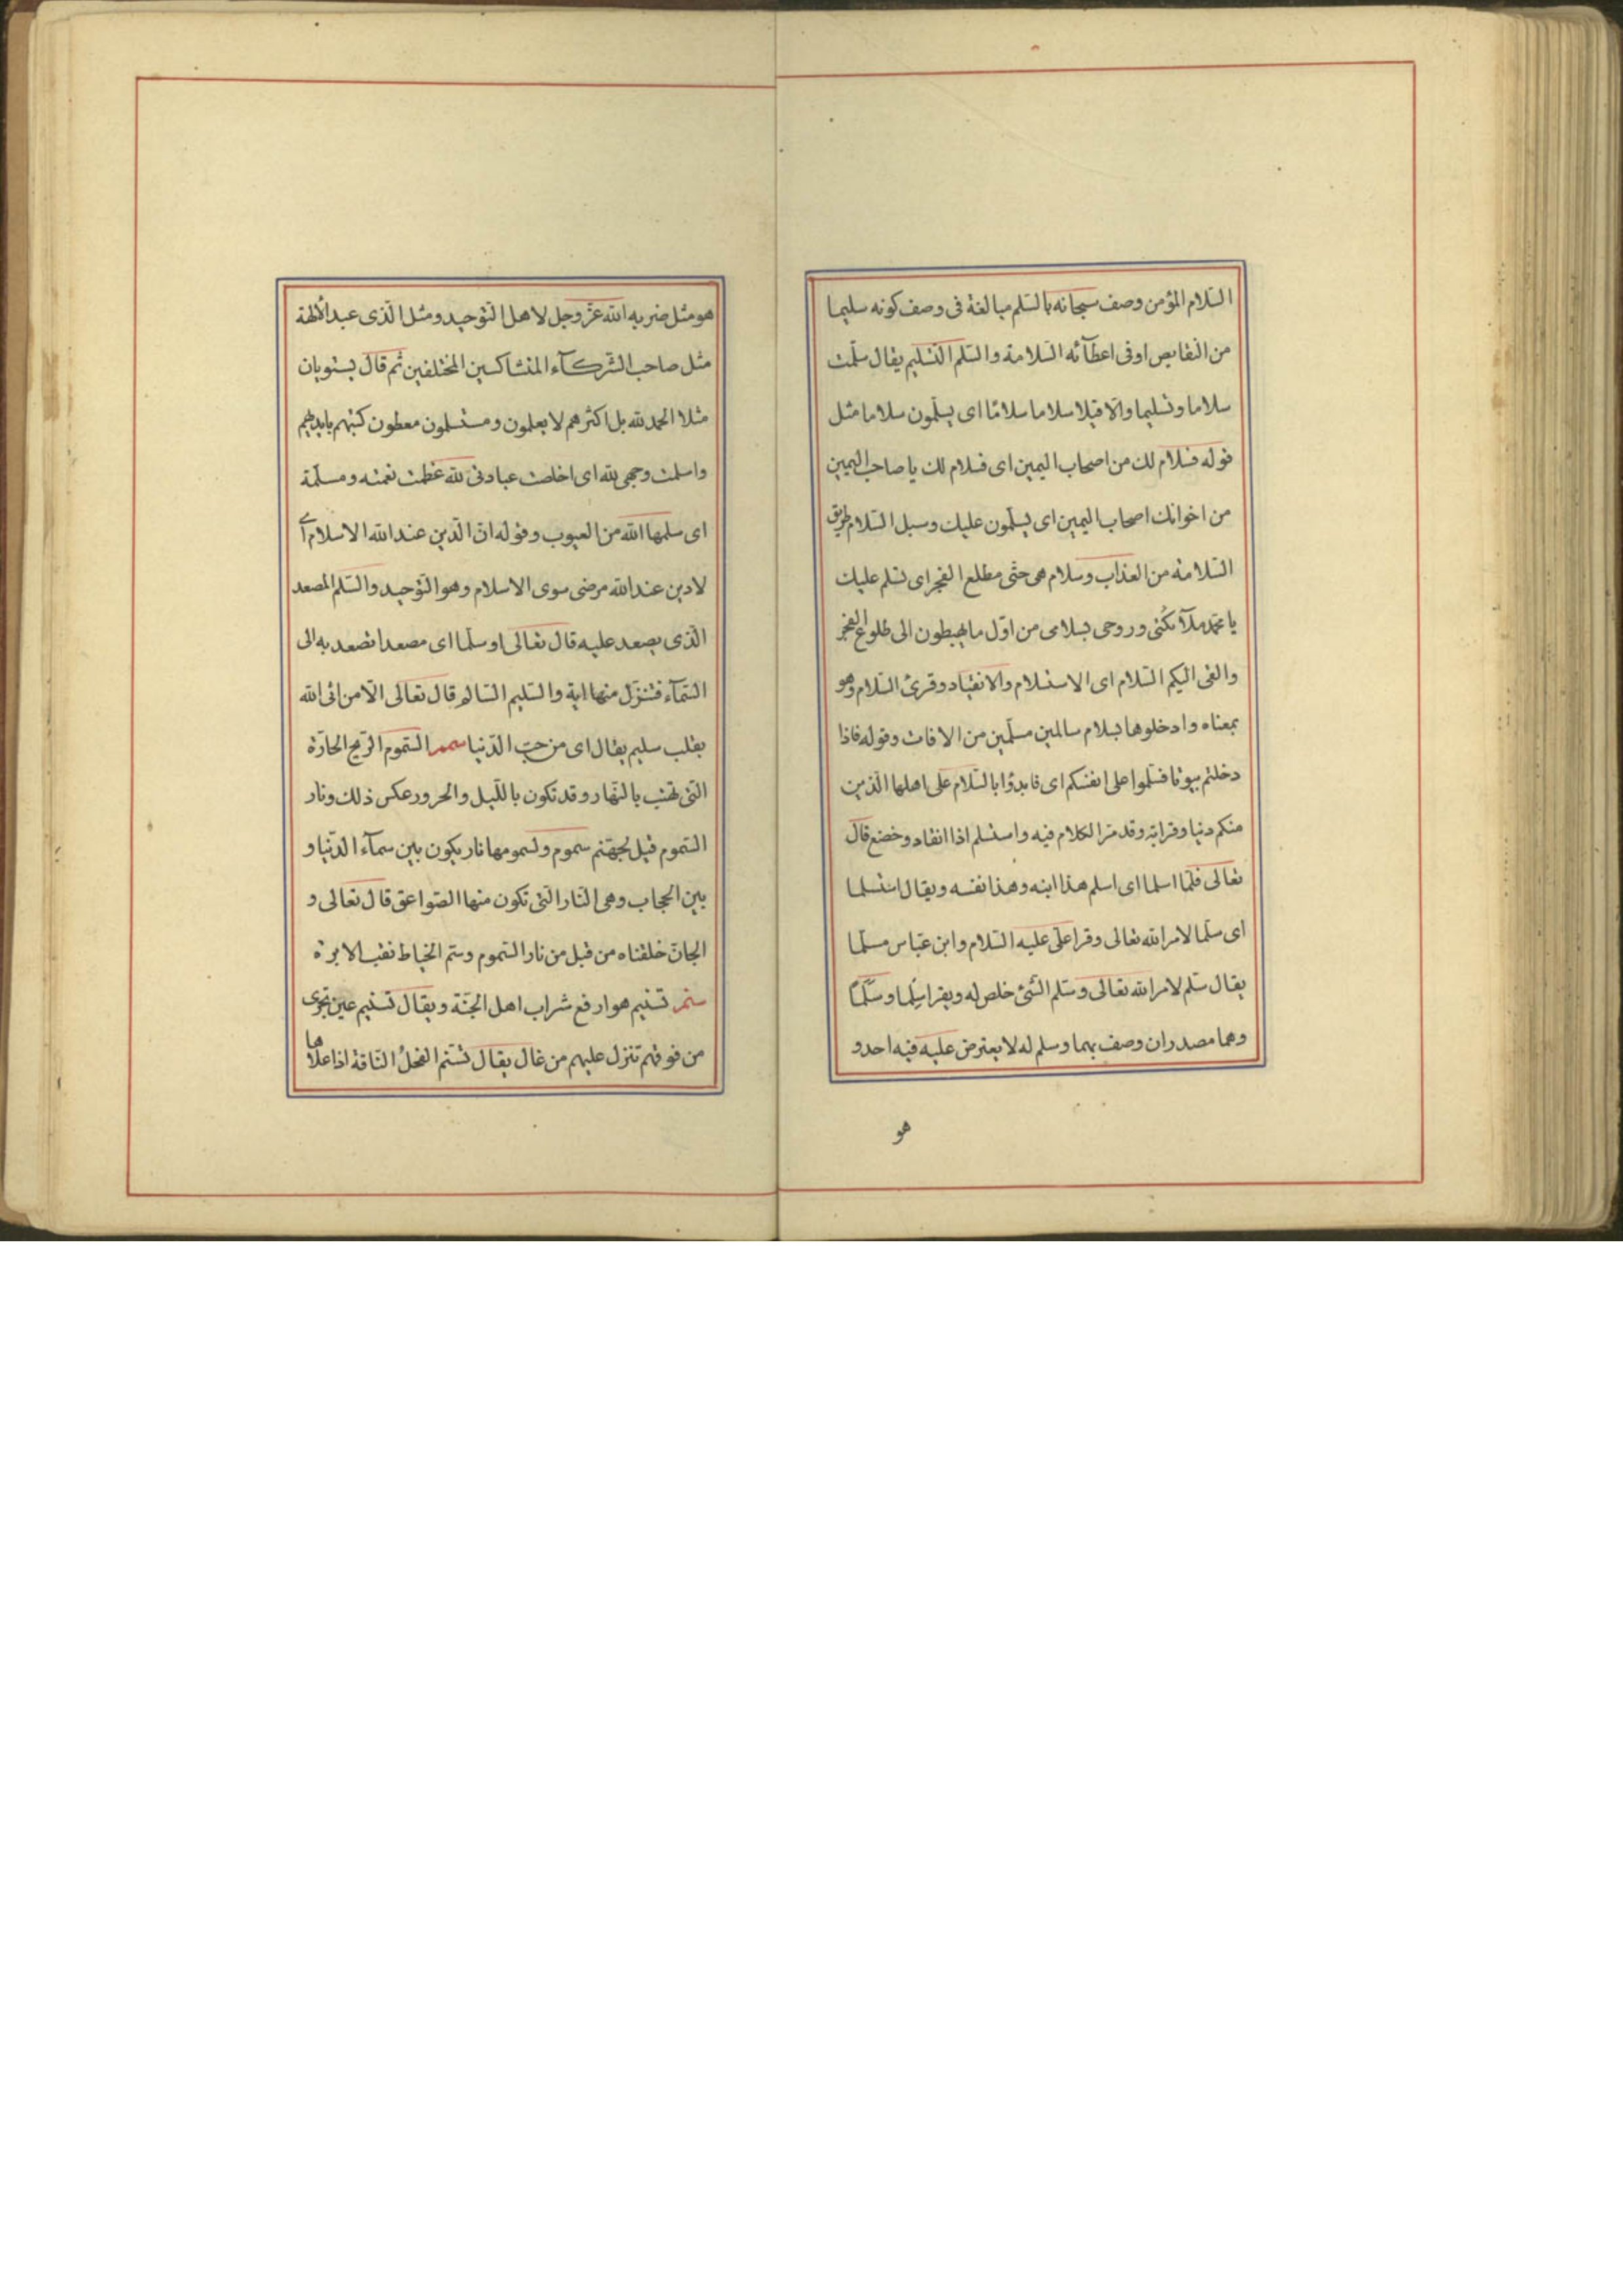 السّلام المؤمن وصف سبحانه بالسّلم مبالغة فى وصف كونه سليما
من النّقايص اوفى اعطآئه السّلامة والسّلم التّسليم يقال سلّمت
سلاما وتسليما والّا قيلا سلاما سلامًا اى يسلّمون سلاما مثل
قوله فسلام لك من اصحاب اليمين اى فسلام لك يا صاحب اليمين
من اخوانك اصحاب اليمين اى يسلّمون عليك وسبل السّلام طريق
السّلامة من العذاب وسلام هى حتّى مطلع الفجر اى تسلم عليك
يا محمّد ملآئكتى وروحى بسلامى من اوّل ما يهبطون الى طلوع الفجر
والقى اليكم السّلام اى الاستسلام والانقياد وقرئ السّلام وهو
بمعناه وادخلوها بسلام سالمين مسلّمين من الافات وقوله فاذا
دخلتم بيوتا فسلّموا على انفسكم اى فابدؤا بالسّلام على اهلها الّذين
منكم دنيا وقرابة وقد مرّ الكلام فيه واستسلم اذا انقاد وخضع قال
تعالى فلمّا اسلما اى اسلم هذا ابنه وهذا نفسه ويقال استسلما
اى سلّما لامر الله تعالى وقرا علّى عليه السّلام وابن عبّاس سلّما
يقال سلّم لامر الله تعالى وسلّم الشّئ خلص له ويقرا سِلما وسَلَمًا
وهما مصدران وصف بهما وسلم له لا يعترض عليه فيه احد و
هو
هو مثل ضربه الله عزّ وجل لاهل التّوحيد ومثل الّذى عبد الالهة
مثل صاحب الشّركآء المتشاكسين المختلفين ثم قال يستويان
مثلا الحمد لله بل اكثرهم لا يعلمون ومستسلمون معطون كتبهم بايديهم
واسلمت وجهى لله اى اخلصت عبادتى لله عظمت نعمته ومسلّمة
اى سلمها الله من العيوب وقوله انّ الّدين عند الله الاسلام اى
لا دين عند الله مرضى سوى الاسلام وهو التّوحيد والسّلم المصعد
الّذى يصعد عليه قال تعالى او سلّما اى مصعدا تصعد به الى
السّمآء فتنزّل منها اية والسّليم السّالم قال تعالى الّا من اتى الله
بقلب سليم يقال اى من حبّ الدّنيا سمم السّموم الرّيح الحارّة
التى تهبّ بالنّهار وقد تكون باللّيل والحرور عكس ذلك ونار
السّموم قيل لجهنّم سموم ولسمومها نار يكون بين سمآء الدّنيا و
بين الحجاب وهى النّار الّتى تكون منها الصّواعق قال تعالى و
الجانّ خلقناه من قبل من نار السّموم وسمّ الخياط ثقب الابرة
سنم تسنيم هو ارفع شراب اهل الجنّة ويقال تسنيم عين تجرى
من فوقهم تنزل عليهم من عال يقال تسنّم الفحلُ النّاقة اذا علاها